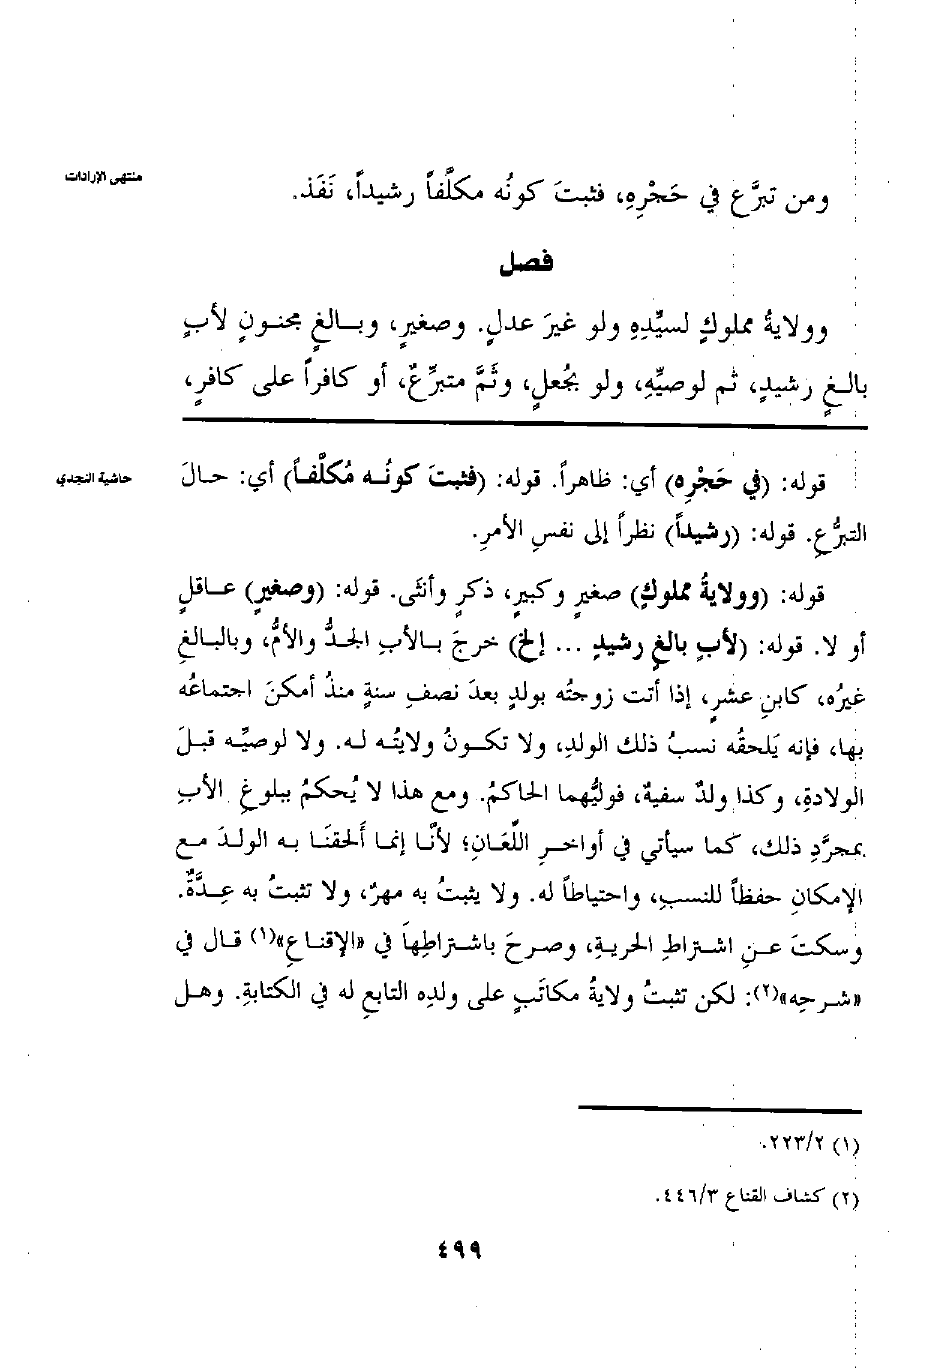 منتهى الإرادات
ومن تبرَّع في حَجْرِهِ، فثبتَ كونُه مكلَّفاً رشيداً، نَفَذ.
فصل
وولايةُ مملوكٍ لسيِّدِهِ ولو غيرَ عدلٍ. وصغيرٍ، وبالغٍ مجنونٍ لأبٍ
بالغٍ رشيدٍ، ثم لوصيِّهِ، ولو بجُعلٍ، وثَمَّ متبرِّعٌ، أو كافراً على كافرٍ،
حاشية النجدي
قوله: (في حَجْرِه) أي: ظاهراً. قوله: (فثبتَ كونُه مُكلَّفاً) أي: حالَ
التبرُّعِ. قوله: (رشيداً) نظراً إلى نفسِ الأمرِ.
قوله: (وولايةُ مملوكٍ) صغيرٍ وكبيرٍ، ذكرٍ وأنثى. قوله: (وصغيرٍ) عاقلٍ
أو لا. قوله: (لأبٍ بالغٍ رشيدٍ ... إلخ) خرجَ بالأبِ الجدُّ والأمُّ، وبالبالغِ
غيرُه، كابنِ عشرٍ، إذا أتت زوجتُه بولدٍ بعدَ نصفِ سنةٍ منذُ أمكنَ اجتماعُه
بها، فإنه يَلحقُه نسبُ ذلك الولدِ، ولا تكونُ ولايتُه له. ولا لوصيِّه قبلَ
الولادةِ، وكذا ولدُ سفيهٍ، فوليُّهما الحاكمُ. ومع هذا لا يُحكمُ ببلوغِ الأبِ
بمجرَّدِ ذلك، كما سيأتي في أواخرِ اللِّعَانِ؛ لأنَّا إنما أَلحقنَا به الولدَ مع
الإمكانِ حفظاً للنسبِ، واحتياطاً له. ولا يثبتُ به مهرٌ، ولا تثبتُ به عِدَّةٌ.
وسكتَ عن اشتراطِ الحريةِ، وصرحَ باشتراطِهَا في «الإقناعِ»(١) قال في
«شرحِه»(٢): لكن تثبتُ ولايةُ مكاتَبٍ على ولدِه التابعِ له في الكتابةِ. وهل
(١) ٢٢٣/٢.
(٢) كشاف القناع ٤٤٦/٣.
٤٩٩